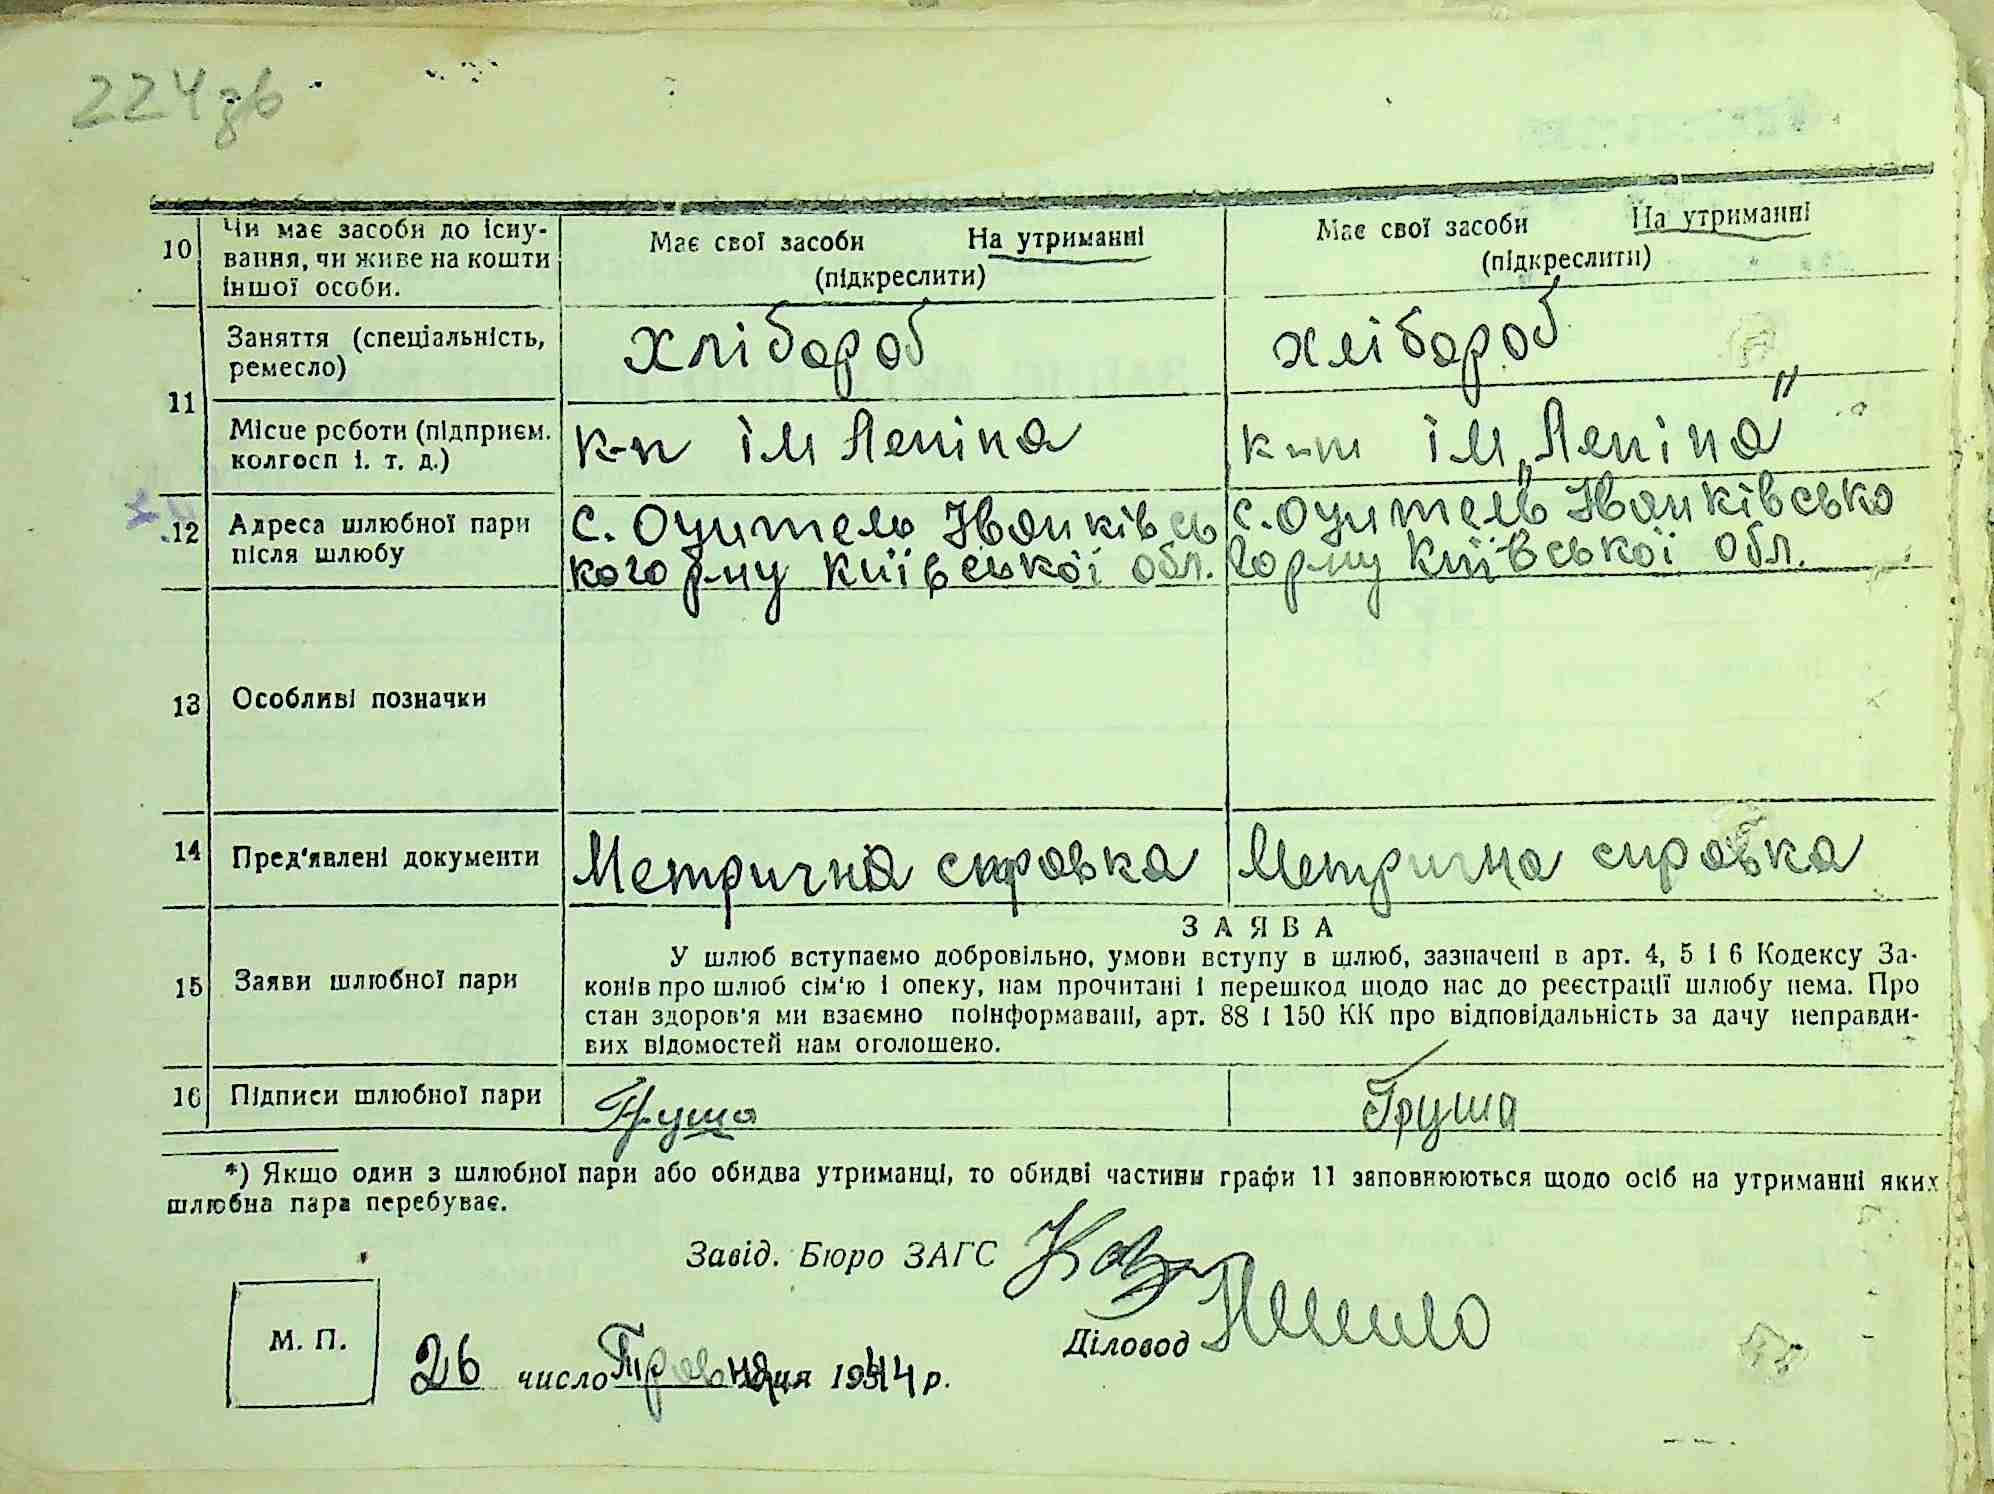 224зв
10 Чи має засоби до існу-
вання, чи живе на кошти
іншої особи.
Має свої засоби На утриманні
(підкреслити)
Має свої засоби На утриманні
(підкреслити)
11 Заняття (спеціальність,
ремесло)
хлібороб
хлібороб
Місце роботи (підприєм.
колгосп і. т. д.)
к-п ім Леніна
к-пі ім „Леніна"
12 Адреса шлюбної пари
після шлюбу
с. Оцитель Іванківсь
кого р-ну Київської обл.
с. Оцитель Іванківсько
го р-ну Київської обл.
13 Особливі позначки
14 Пред'явлені документи
Метрична справка
Метрична справка
15 Заяви шлюбної пари
ЗАЯВА
У шлюб вступаємо добровільно, умови вступу в шлюб, зазначені в арт. 4, 5 і 6 Кодексу За-
конів про шлюб сім'ю і опеку, нам прочитані і перешкод щодо нас до реєстрації шлюбу нема. Про
стан здоров'я ми взаємно поінформавані, арт. 88 і 150 КК про відповідальність за дачу неправди-
вих відомостей нам оголошено.
16 Підписи шлюбної пари
Груша
Груша
*) Якщо один з шлюбної пари або обидва утриманці, то обидві частини графи 11 заповнюються щодо осіб на утриманні яких
шлюбна пара перебуває.
Завід. Бюро ЗАГС
Діловод
М. П.
26 число Травня 1944 р.